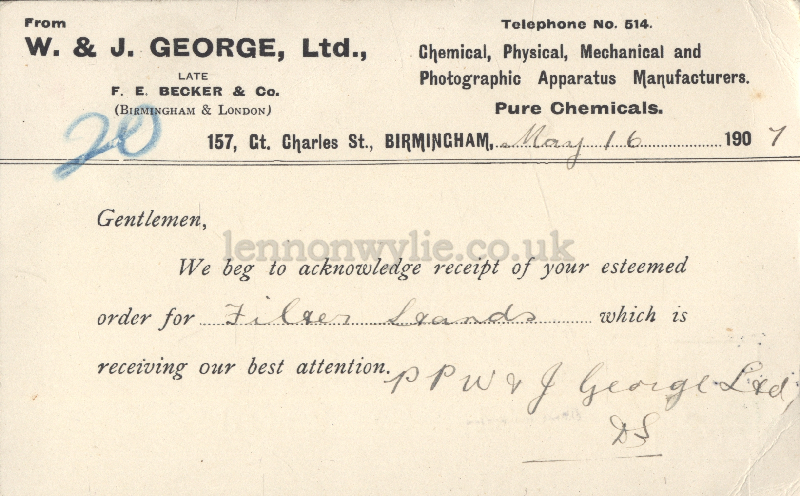 From
W. & J. GEORGE, Ltd.,
LATE
F. E. BECKER & Co.
(BIRMINGHAM & LONDON)
Telephone No. 514.
Chemical, Physical, Mechanical and
Photographic Apparatus Manufacturers.
Pure Chemicals.
20
157, Gt. Charles St., BIRMINGHAM, May 16 1907
lennonwylie.co.uk
Gentlemen,
We beg to acknowledge receipt of your esteemed
order for Filter Stands which is
receiving our best attention.
PP W & J George Ltd
DS